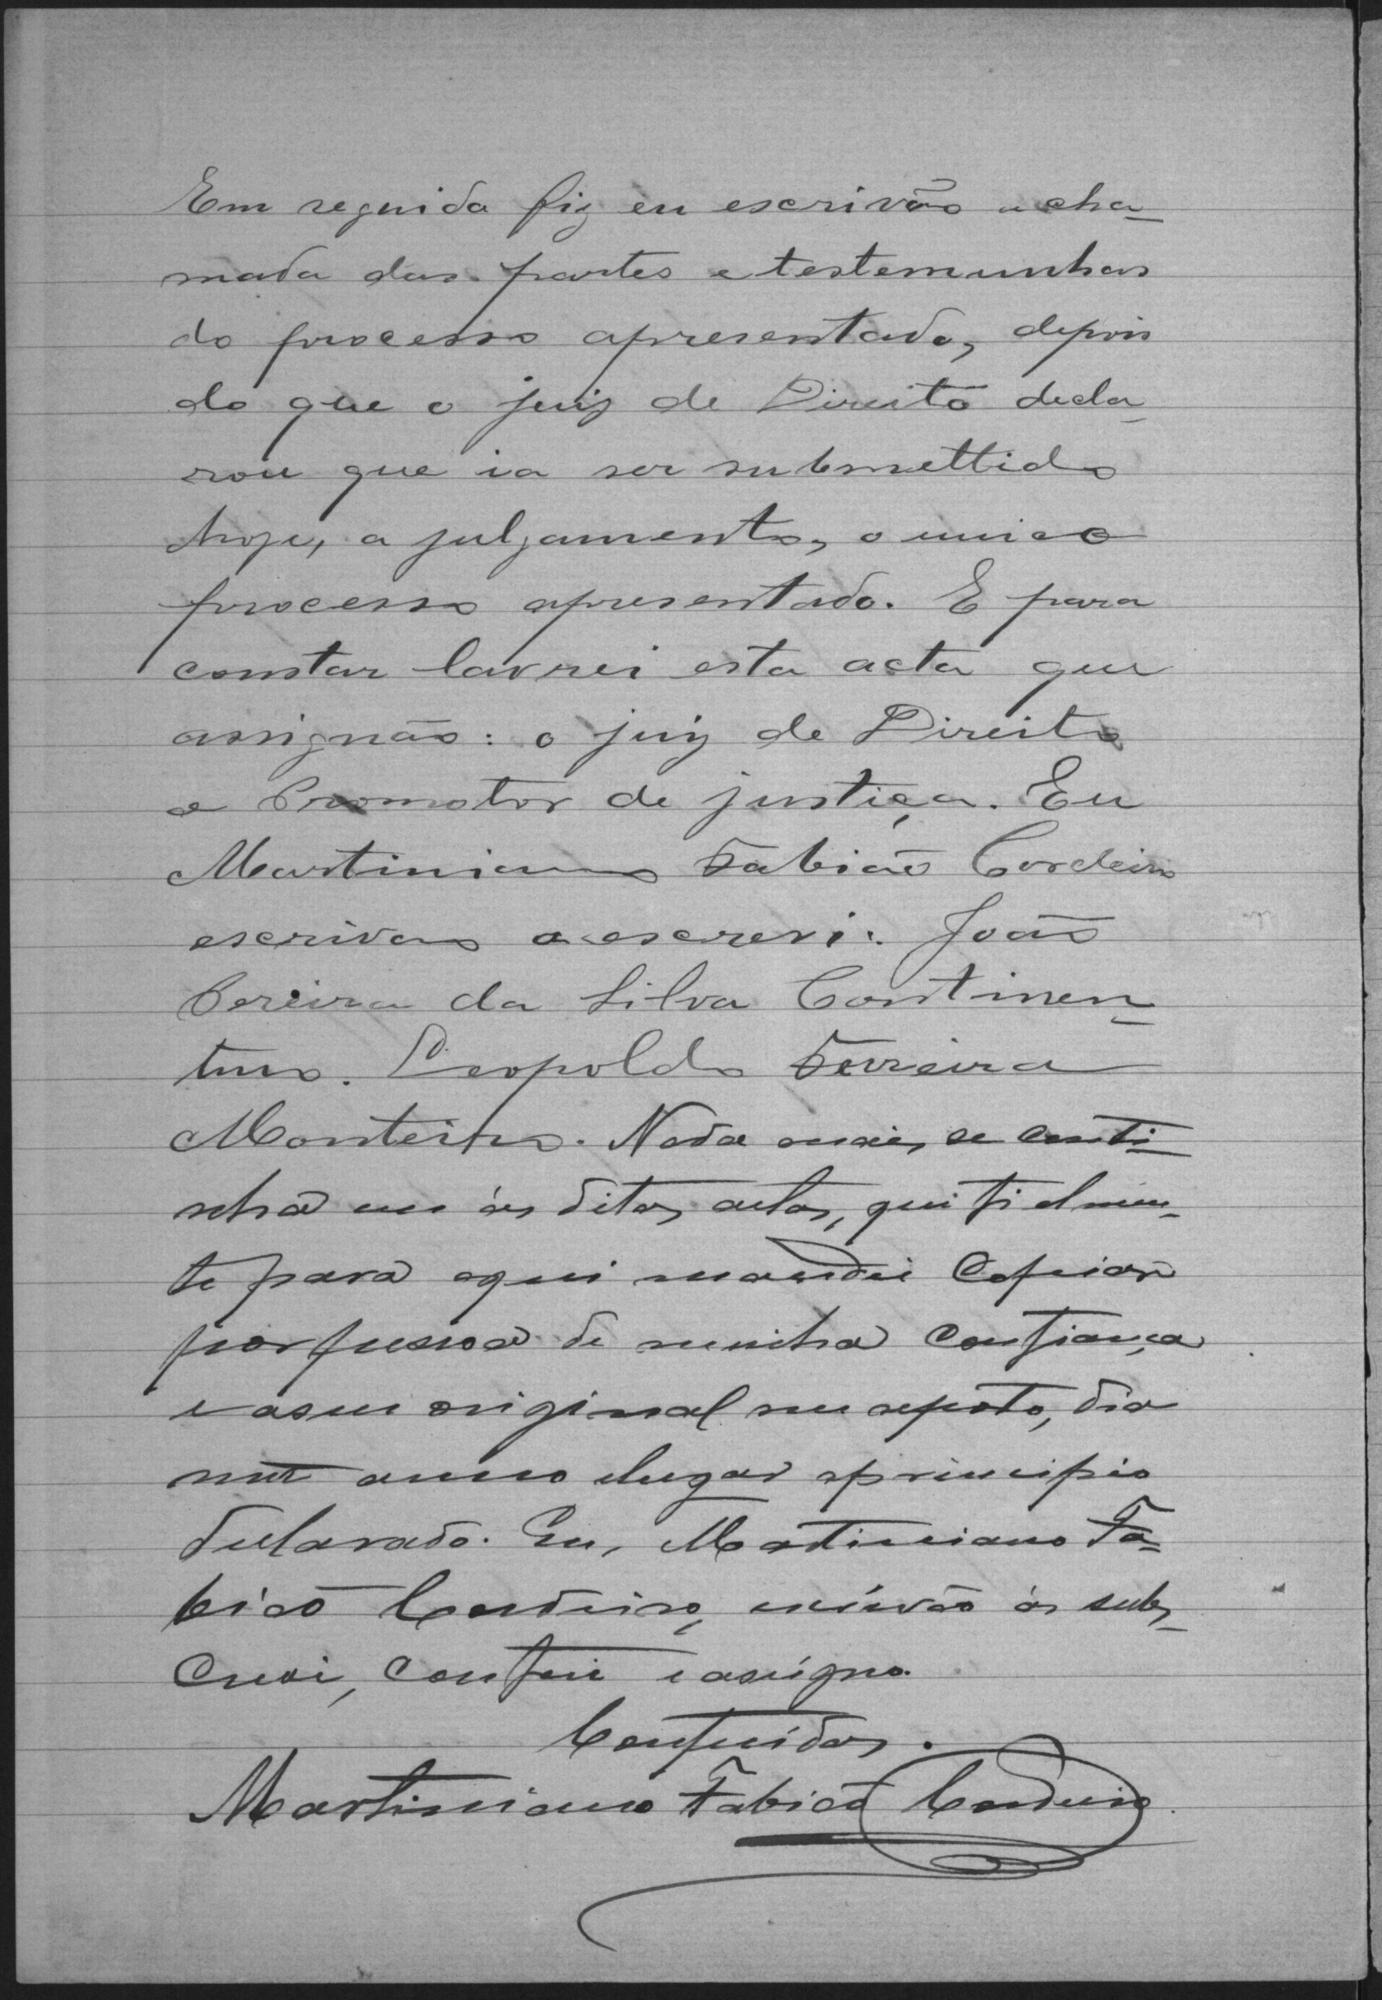 Em seguida fiz eu escrivão a cha-
mada das partes e testemunhas
do processo apresentado, depois
do que o juiz de Direito decla-
rou que ia ser submettido
hoje, a julgamento, o unico
processo apresentado. E para
constar lavrei esta acta que
assignão: o juiz de Direito
e Promotor de justiça. Eu
Martiniano Fabião Cordeiro
escrivão a escrevi. João
Pereira da Silva Continen-
tino. Leopoldo Ferreira
Monteiro. Nada mais se conti-
nha em ás ditas actas, que fielmen-
te para aqui mandei copiar
por pessoa de minha confiança
e a seu original me reporto, dia
mez anno e lugar a principio
declarado. Eu, Martiniano Fa-
bião Cordeiro, escrivão ás subs-
crevi, conferi e assigno.
Conferidas.
Martiniano Fabião Cordeiro